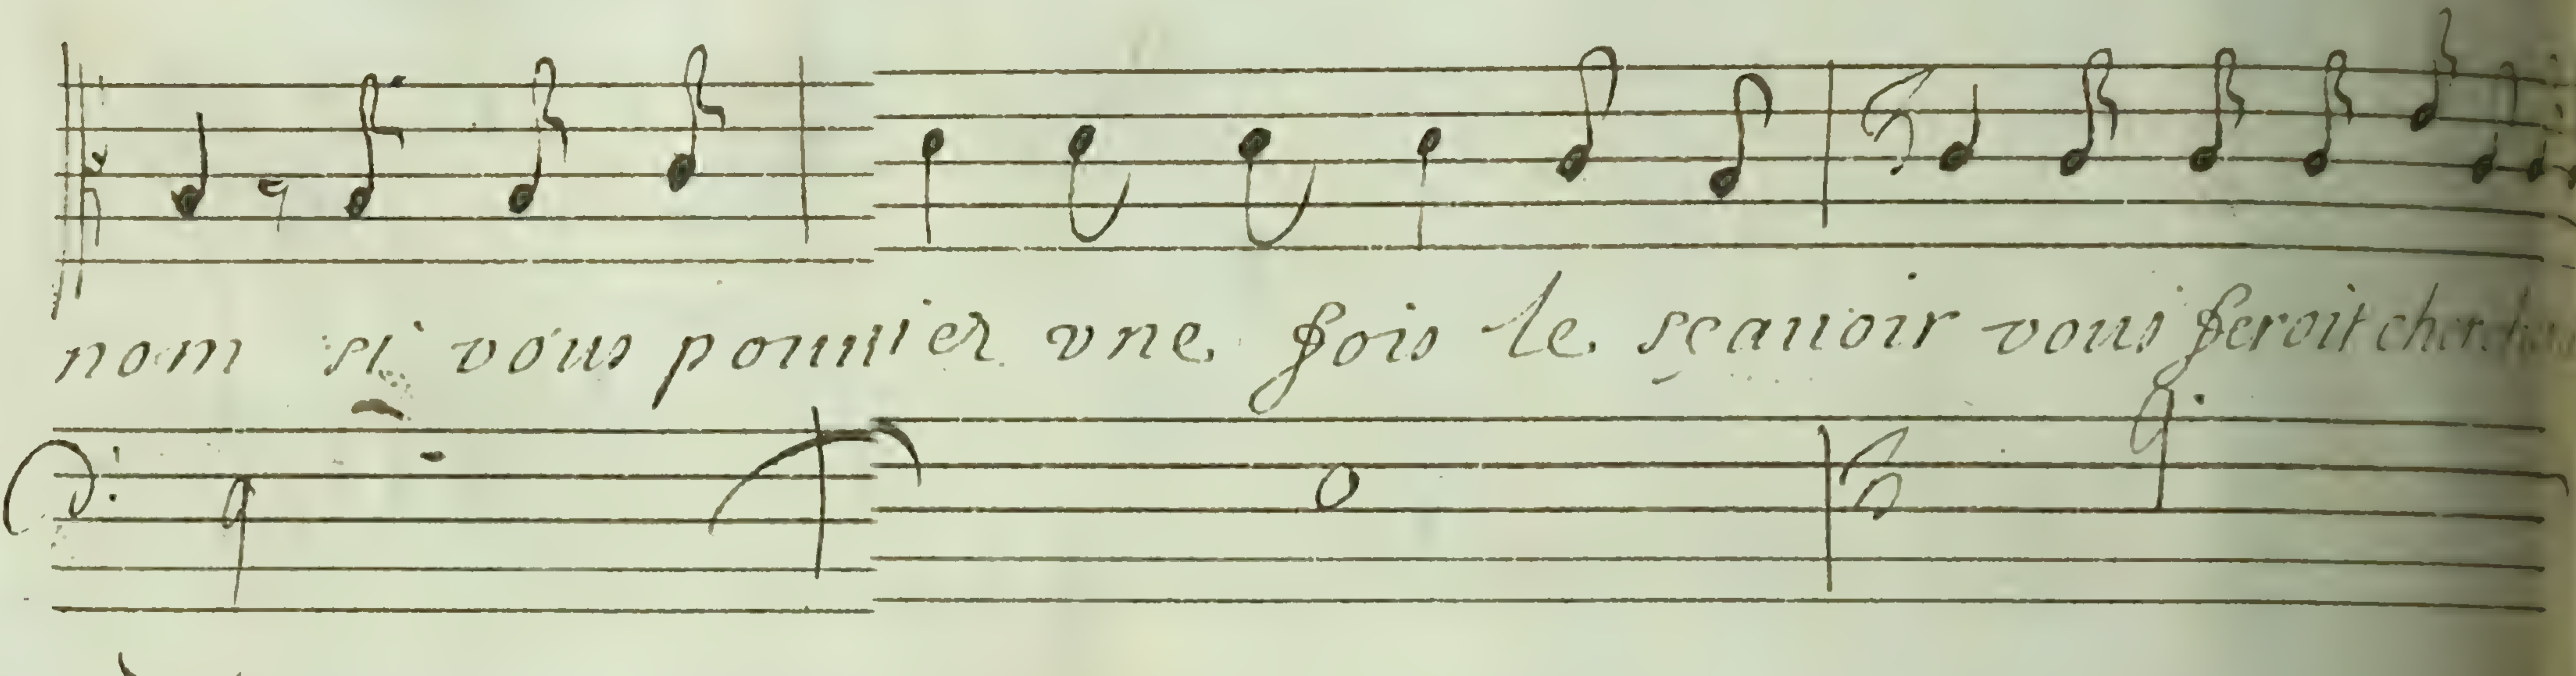 nom si vous pouuier vne fois le sçauoir vous feroit cher